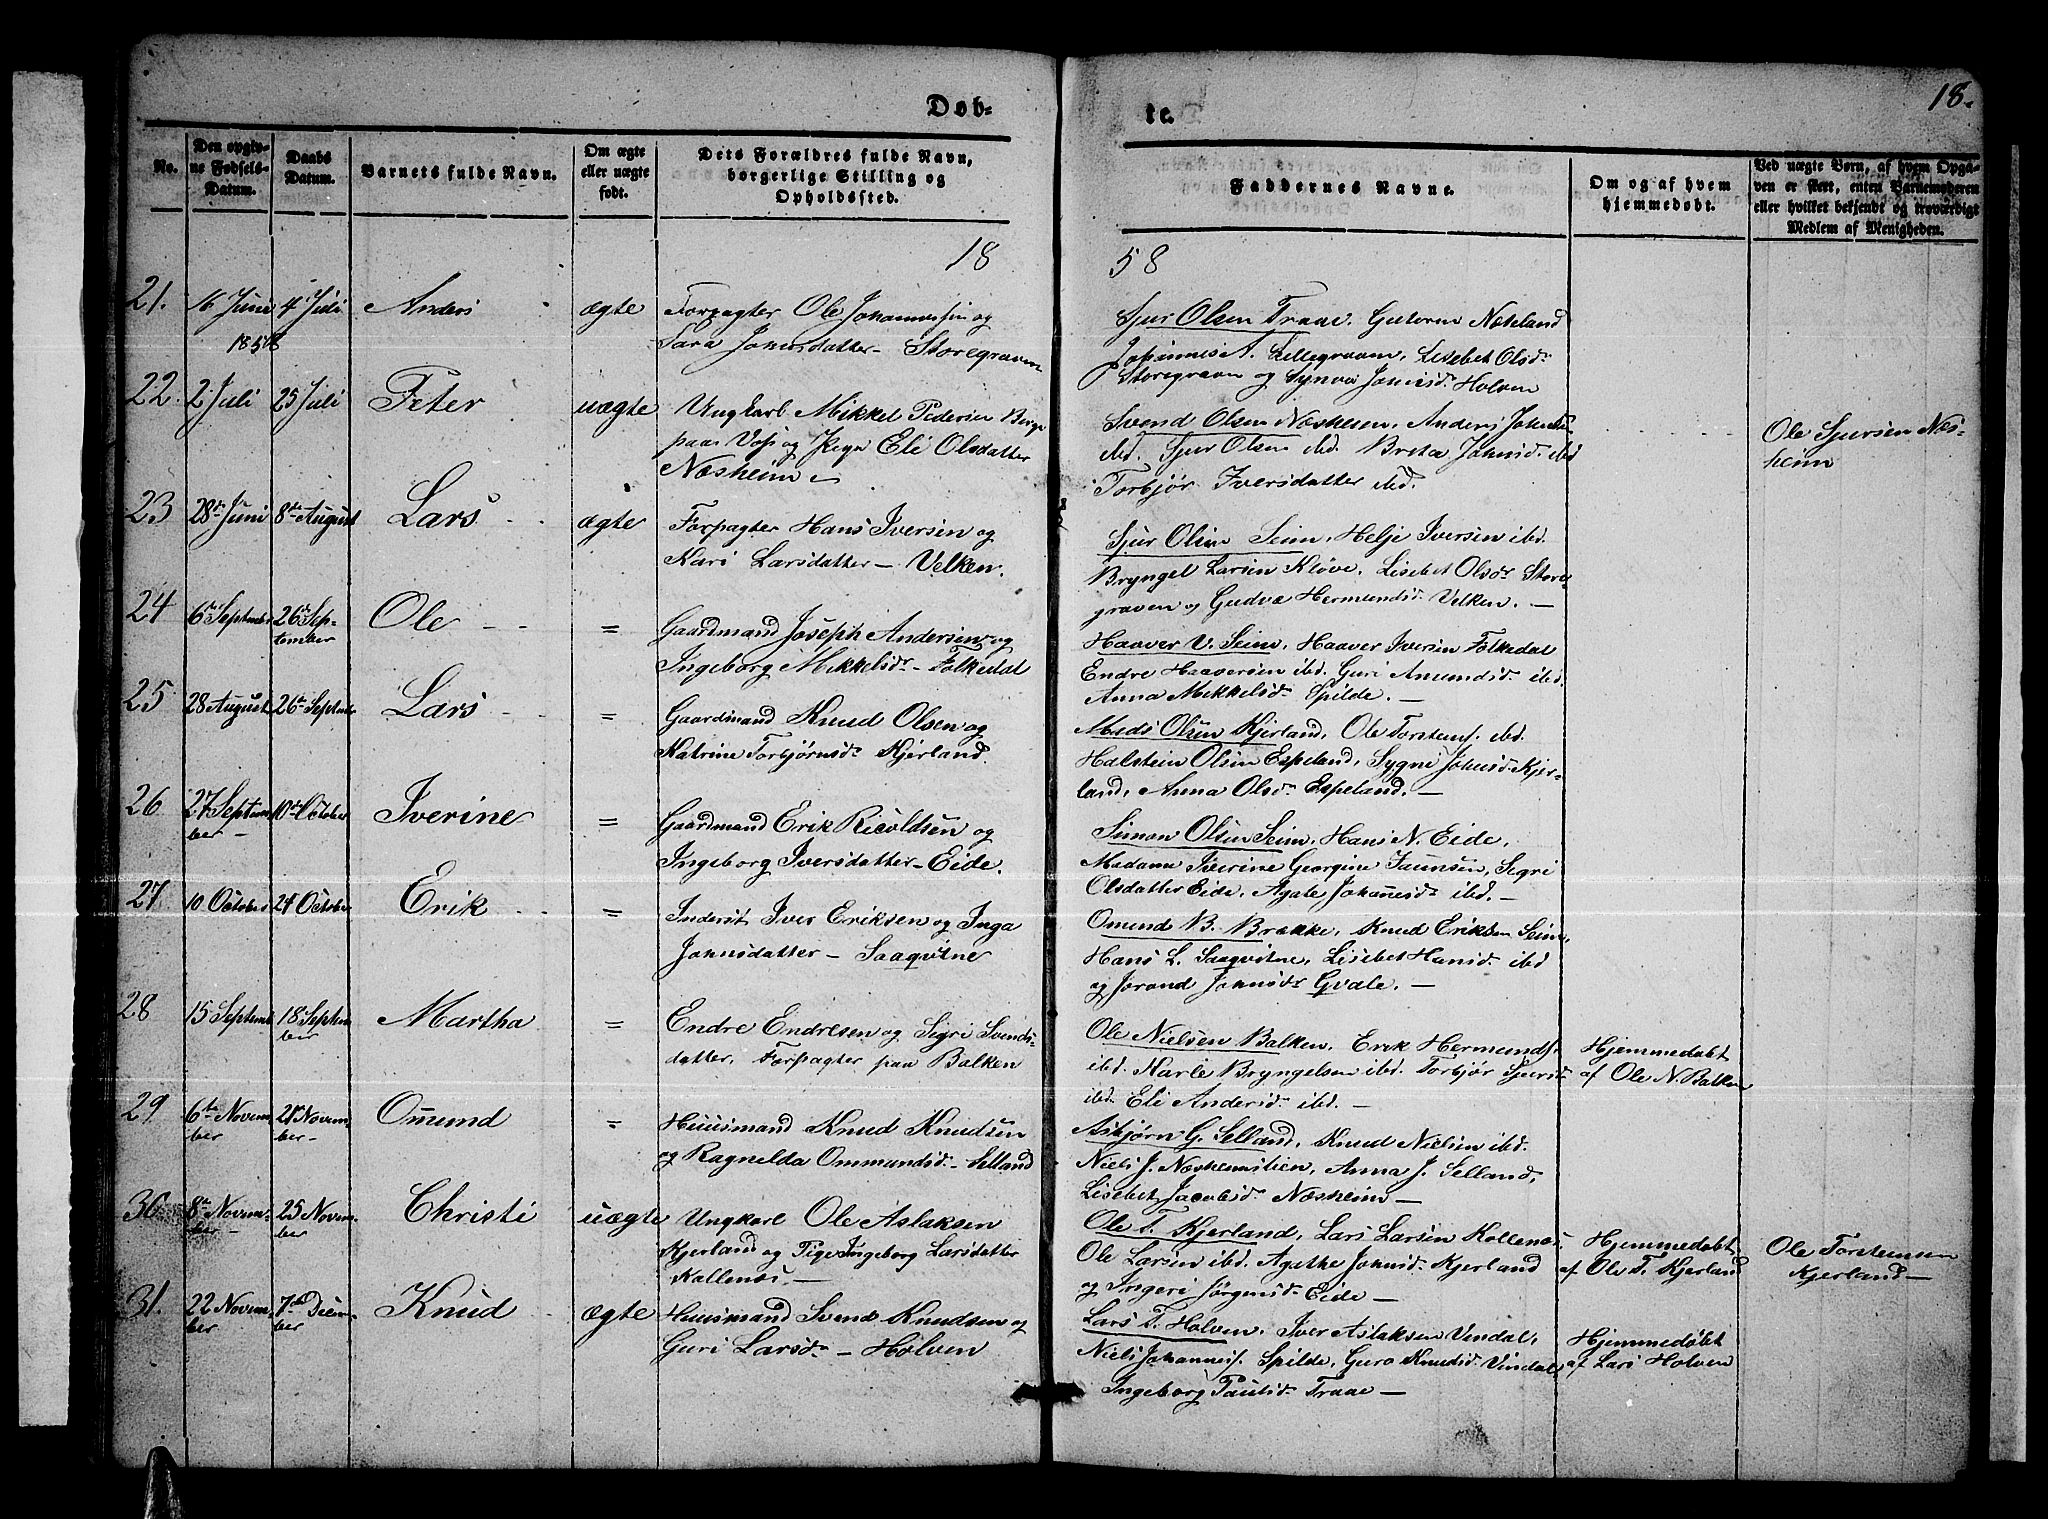 18.
Døb-
te.
No.
Den opgiv-
ne Fødsels-
Datum.
Daabs
Datum.
Barnets fulde Navn.
Om ægte
eller uægte
født.
Dets Forældres fulde Navn,
borgerlige Stilling og
Opholdssted.
Faddernes Navne.
Om og af hvem
hjemmedøbt.
Ved uægte Børn, af hvem Opga-
ven er skeet, enten Barnemoderen
eller hvilket bekjendt og troværdigt
Medlem af Menigheden.
18
58
21.
16 Juni
1858
4 Juli
Anders
ægte
Forpagter Ole Johannessen og
Sara Johnsdatter – Storegraven
Sjur Olsen Traae. Gutorm Næseland
Johannes A. Lillegraven, Lisebet Olsdr
Storegraven og Synva Johnsd. Holven
22.
2 Juli
25 Juli
Peter
uægte
Ungkarl Mikkel Pedersen Berge
paa Vos og Pige Eli Olsdatter
Næsheim –
Svend Olsen Næsheim, Anders Johns
ibd. Sjur Olsen ibd. Brita Johnsd. ibd
Torbjør Iversdatter ibd.
Ole Sjursen Næs-
heim
23
28de Juni
8de August
Lars
ægte
Forpagter Hans Iversen og
Kari Larsdatter – Velken.
Sjur Olsen Seim, Helje Iversen ibd.
Bryngel Larsen Kløve, Lisebet Olsdr Store
graven og Gudva Hermundsd. Velken. –
24
6te September
26de Sep-
tember
Ole
=
Gaardmand Joseph Andersen og
Ingeborg Mikkelsdr – Folkedal
Haaver V. Seim, Haaver Iversen Folkedal
Endre Haaversen ibd. Guri Amundsd. ibd.
Anna Mikkelsdr Spilde. –
25
28 August
26de Septbr
Lars
=
Gaardmand Knud Olsen og
Katrine Torbjørnsdr Kjerland.
Mads Olsen Kjerland, Ole Torstens. ibd.
Halstein Olsen Espeland, Sygni Johnsd. Kjer-
land, Anna Olsdr Espeland. –
26
27 Septem
ber –
10de October
Iverine
=
Gaardmand Erik Ricoldsen og
Ingeborg Iversdatter – Eide.
Simon Olsen Seim, Hans N. Eide,
Madame Iverine Georgine Jaunsen, Sigri
Olsdatter Eide, Agate Johannesdr ibd. –
27.
10 October
24 October
Erik
=
Inderst Iver Eriksen og Inga
Johnsdatter – Saaqvitne
Omund B. Brække, Knud Eriksen Seim,
Hans L. Saaqvitne, Lisebet Hansd. ibd
og Jorand Johnsdr Qvale. –
28
15 Septemb
18 Septem
ber
Martha
=
Endre Endresen og Sigri Svends-
datter, Forpagter paa Balken
Ole Nielsen Balken, Erik Hermunds.
ibd. Karle Bryngelsen ibd. Torbjør Sjursdr
ibd. Eli Andersd. ibd. –
Hjemmedøbt
af Ole N. Balken
29
6te Novem
ber
21 Novem
ber –
Omund
=
Huusmand Knud Knudsen
og Ragnelda Ommundsd. – Selland
Asbjørn G. Selland, Knud Nielsen ibd.
Niels J. Næsheimstien, Anna J. Selland,
Lisebet Jacobsdr Næsheim –
30
8de Novem-
ber –
25 Novem-
ber
Christi
uægte
Ungkarl Ole Aslaksen
Kjerland og Pige Ingeborg Larsdatter
Kollenæs. –
Ole T. Kjerland, Lars Larsen Kollenæs,
Ole Larsen ibd. Agathe Johnsd. Kjerland
og Ingeri Jørgensdr Eide –
Hjemmedøbt
af Ole T. Kjerland
Ole Torstensen
Kjerland –
31.
22 Novem-
ber
7de Decem-
ber
Knud
ægte
Huusmand Svend Knudsen og
Guri Larsdr – Holven
Lars T. Holven, Iver Aslaksen Vindal,
Niels Johanness. Spilde, Guro Knudsd. Vindal
Ingeborg Paulsdr Traae –
Hjemmedøbt
af Lars Holven